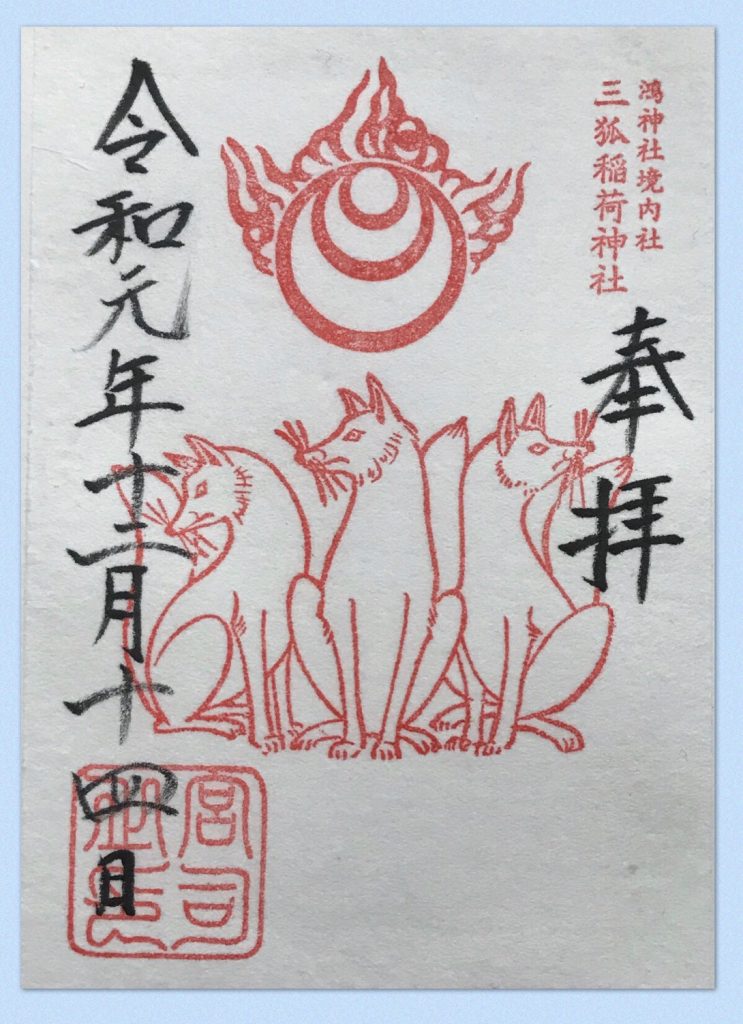 鴻神社境内社
三狐稲荷神社
奉拝
令和元年十二月十四日
宮司